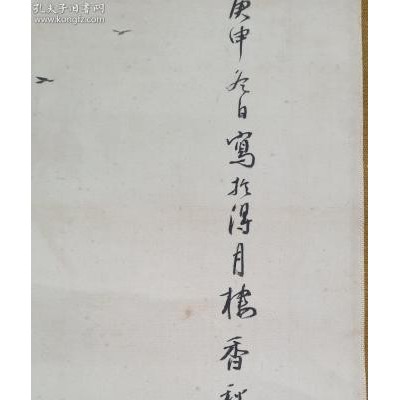 孔夫子旧书网
www.kongfz.com
庚申冬日寫於得月樓香